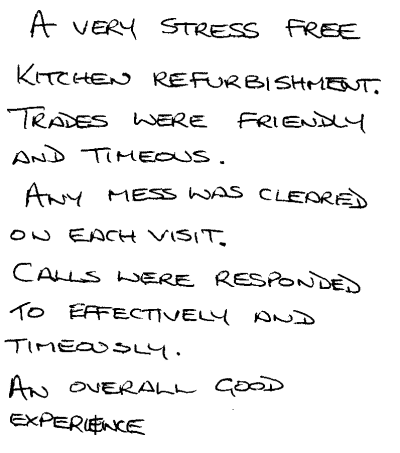 A VERY STRESS FREE
KITCHEN REFURBISHMENT.
TRADES WERE FRIENDLY
AND TIMEOUS.
ANY MESS WAS CLEARED
ON EACH VISIT.
CALLS WERE RESPONDED
TO EFFECTIVELY AND
TIMEOUSLY.
AN OVERALL GOOD
EXPERIENCE